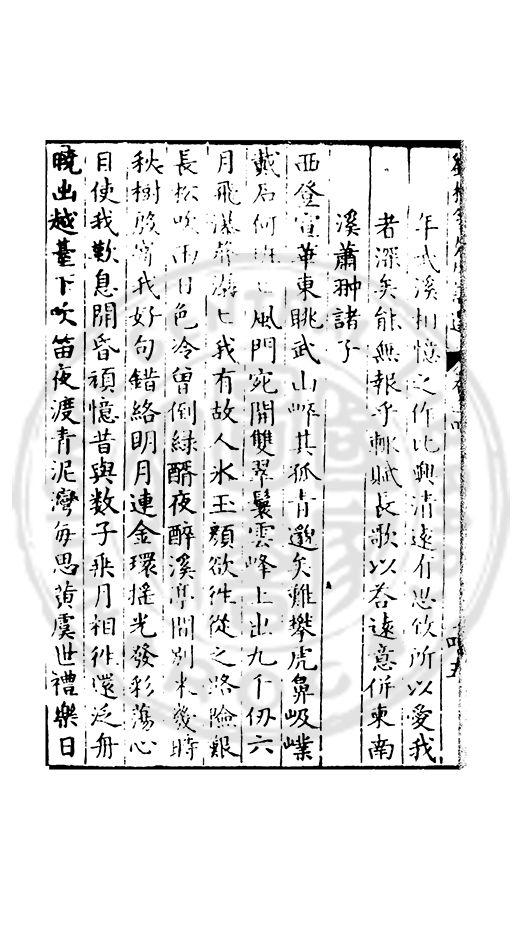 年武溪相憶之作比興清遠有思致所以愛我
者深矣能無報乎輒賦長歌以荅遠意併柬南
溪蕭翀諸子
西登宣華東眺武山崪其孤青邈矣難攀虎鼻岋嶫
戴石何班上風門宛開雙翠鬟雲峰上出九千仞六
月飛瀑聲潺上我有故人氷玉顏欲徃從之路險艱
長松吹雨日色冷曾倒綠醑夜醉溪亭間別來幾時
秋樹殷寄我好句錯絡明月連金環搖光發彩蕩心
目使我歎息開昏頑憶昔與数子乘月相徃還泛舟
曉出越臺下吹笛夜渡青泥灣每思黃虞世禮樂日